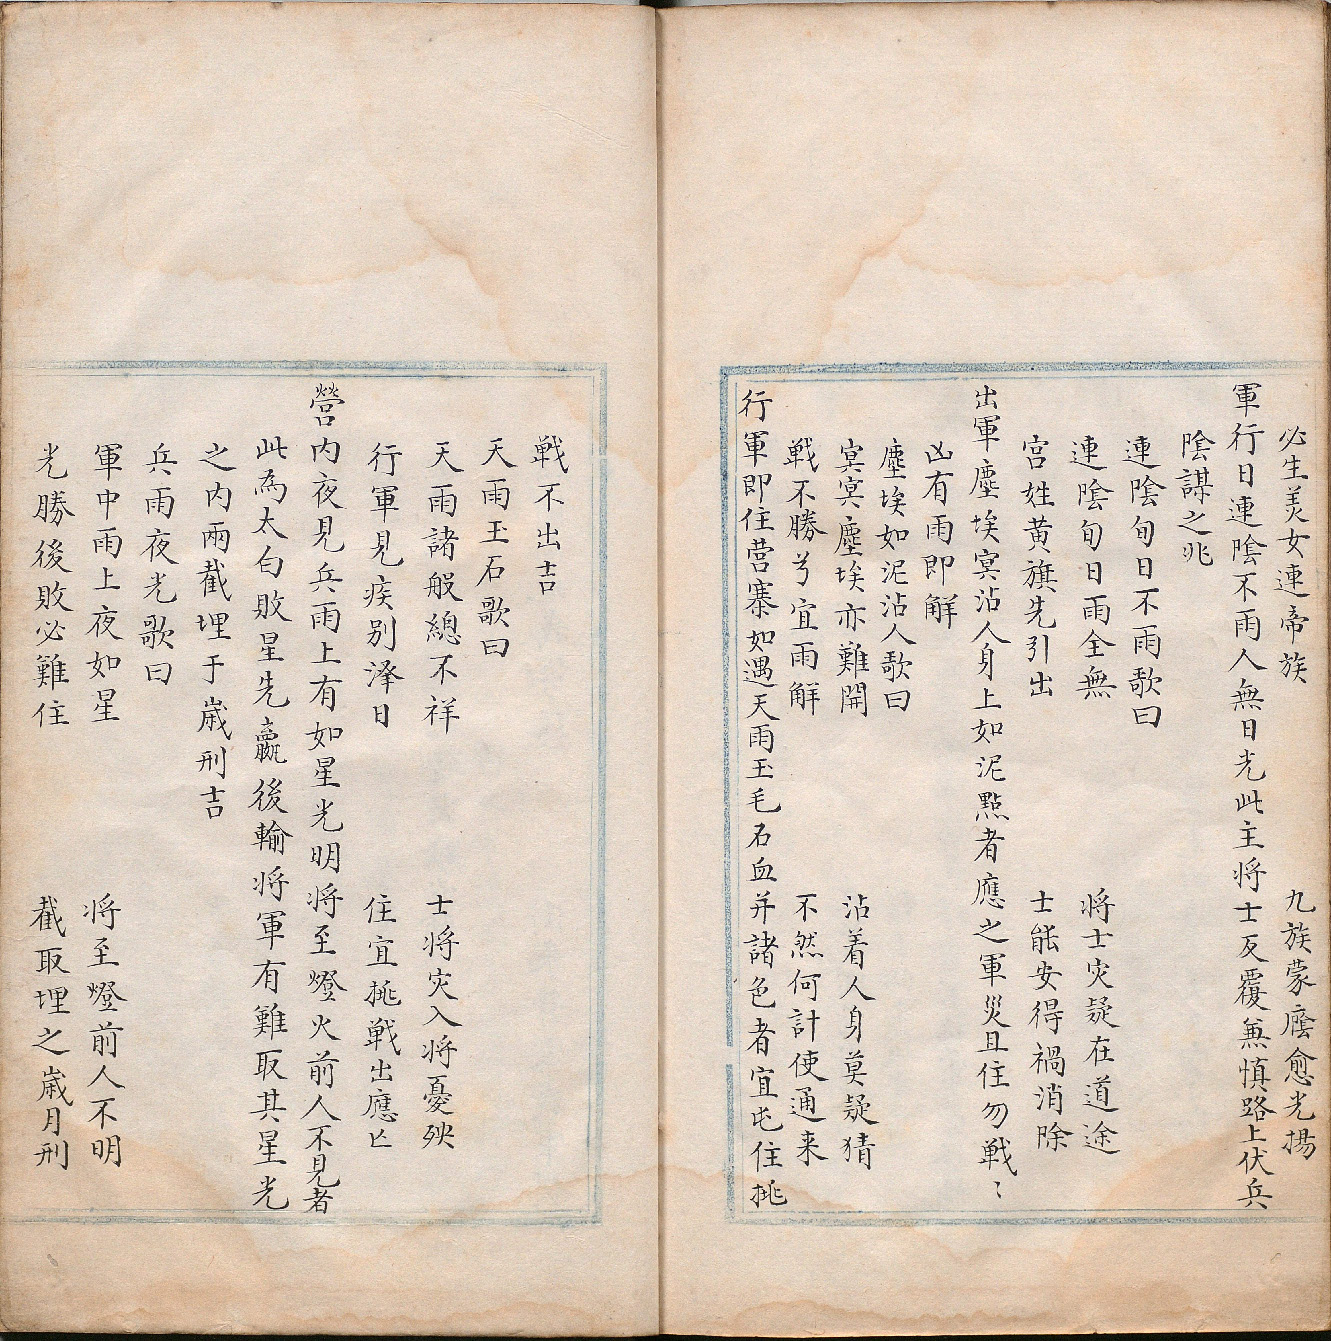 必生美女連帝族　九族蒙廕愈光揚
軍行日連陰不雨人無日光此主将士反覆兼慎路上伏兵
陰謀之兆
連陰旬日不雨歌曰
連陰旬日雨全無　将士灾疑在道途
宫姓黄旗先引出　士能安得禍消除
出軍塵埃冥沾人身上如泥㸃者應之軍災且住勿戦〻
凶有雨即解
塵埃如泥沾人歌曰
冥冥塵埃亦難開　沾着人身莫疑猜
戦不勝兮宜雨解　不然何計使通来
行軍即住营寨如遇天雨玉毛石血并諸色者宜屯住挑
戦不出吉
天雨玉石歌曰
天雨諸般總不祥　士将灾入将憂殃
行軍見疾别澤日　住宜挑戦出應亡
營内夜見兵雨上有如星光明将至燈火前人不見者
此為太白敗星先贏後輸将軍有難取其星光
之内兩截埋于歳刑吉
兵雨夜光歌曰
軍中雨上夜如星　将至燈前人不明
光勝後敗必難住　截取埋之歳月刑